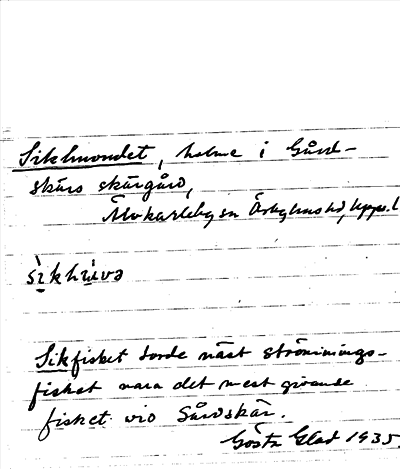 Sikhuvudet, holme i Gård-
skärs skärgård,
Älvkarleby sn Örbyhus hd, Upps. l
sikhuvə
Sikfisket torde näst strömmings-
fisket vara det mest givande
fisket vid Gårdskär.
Gösta Glad 1935.